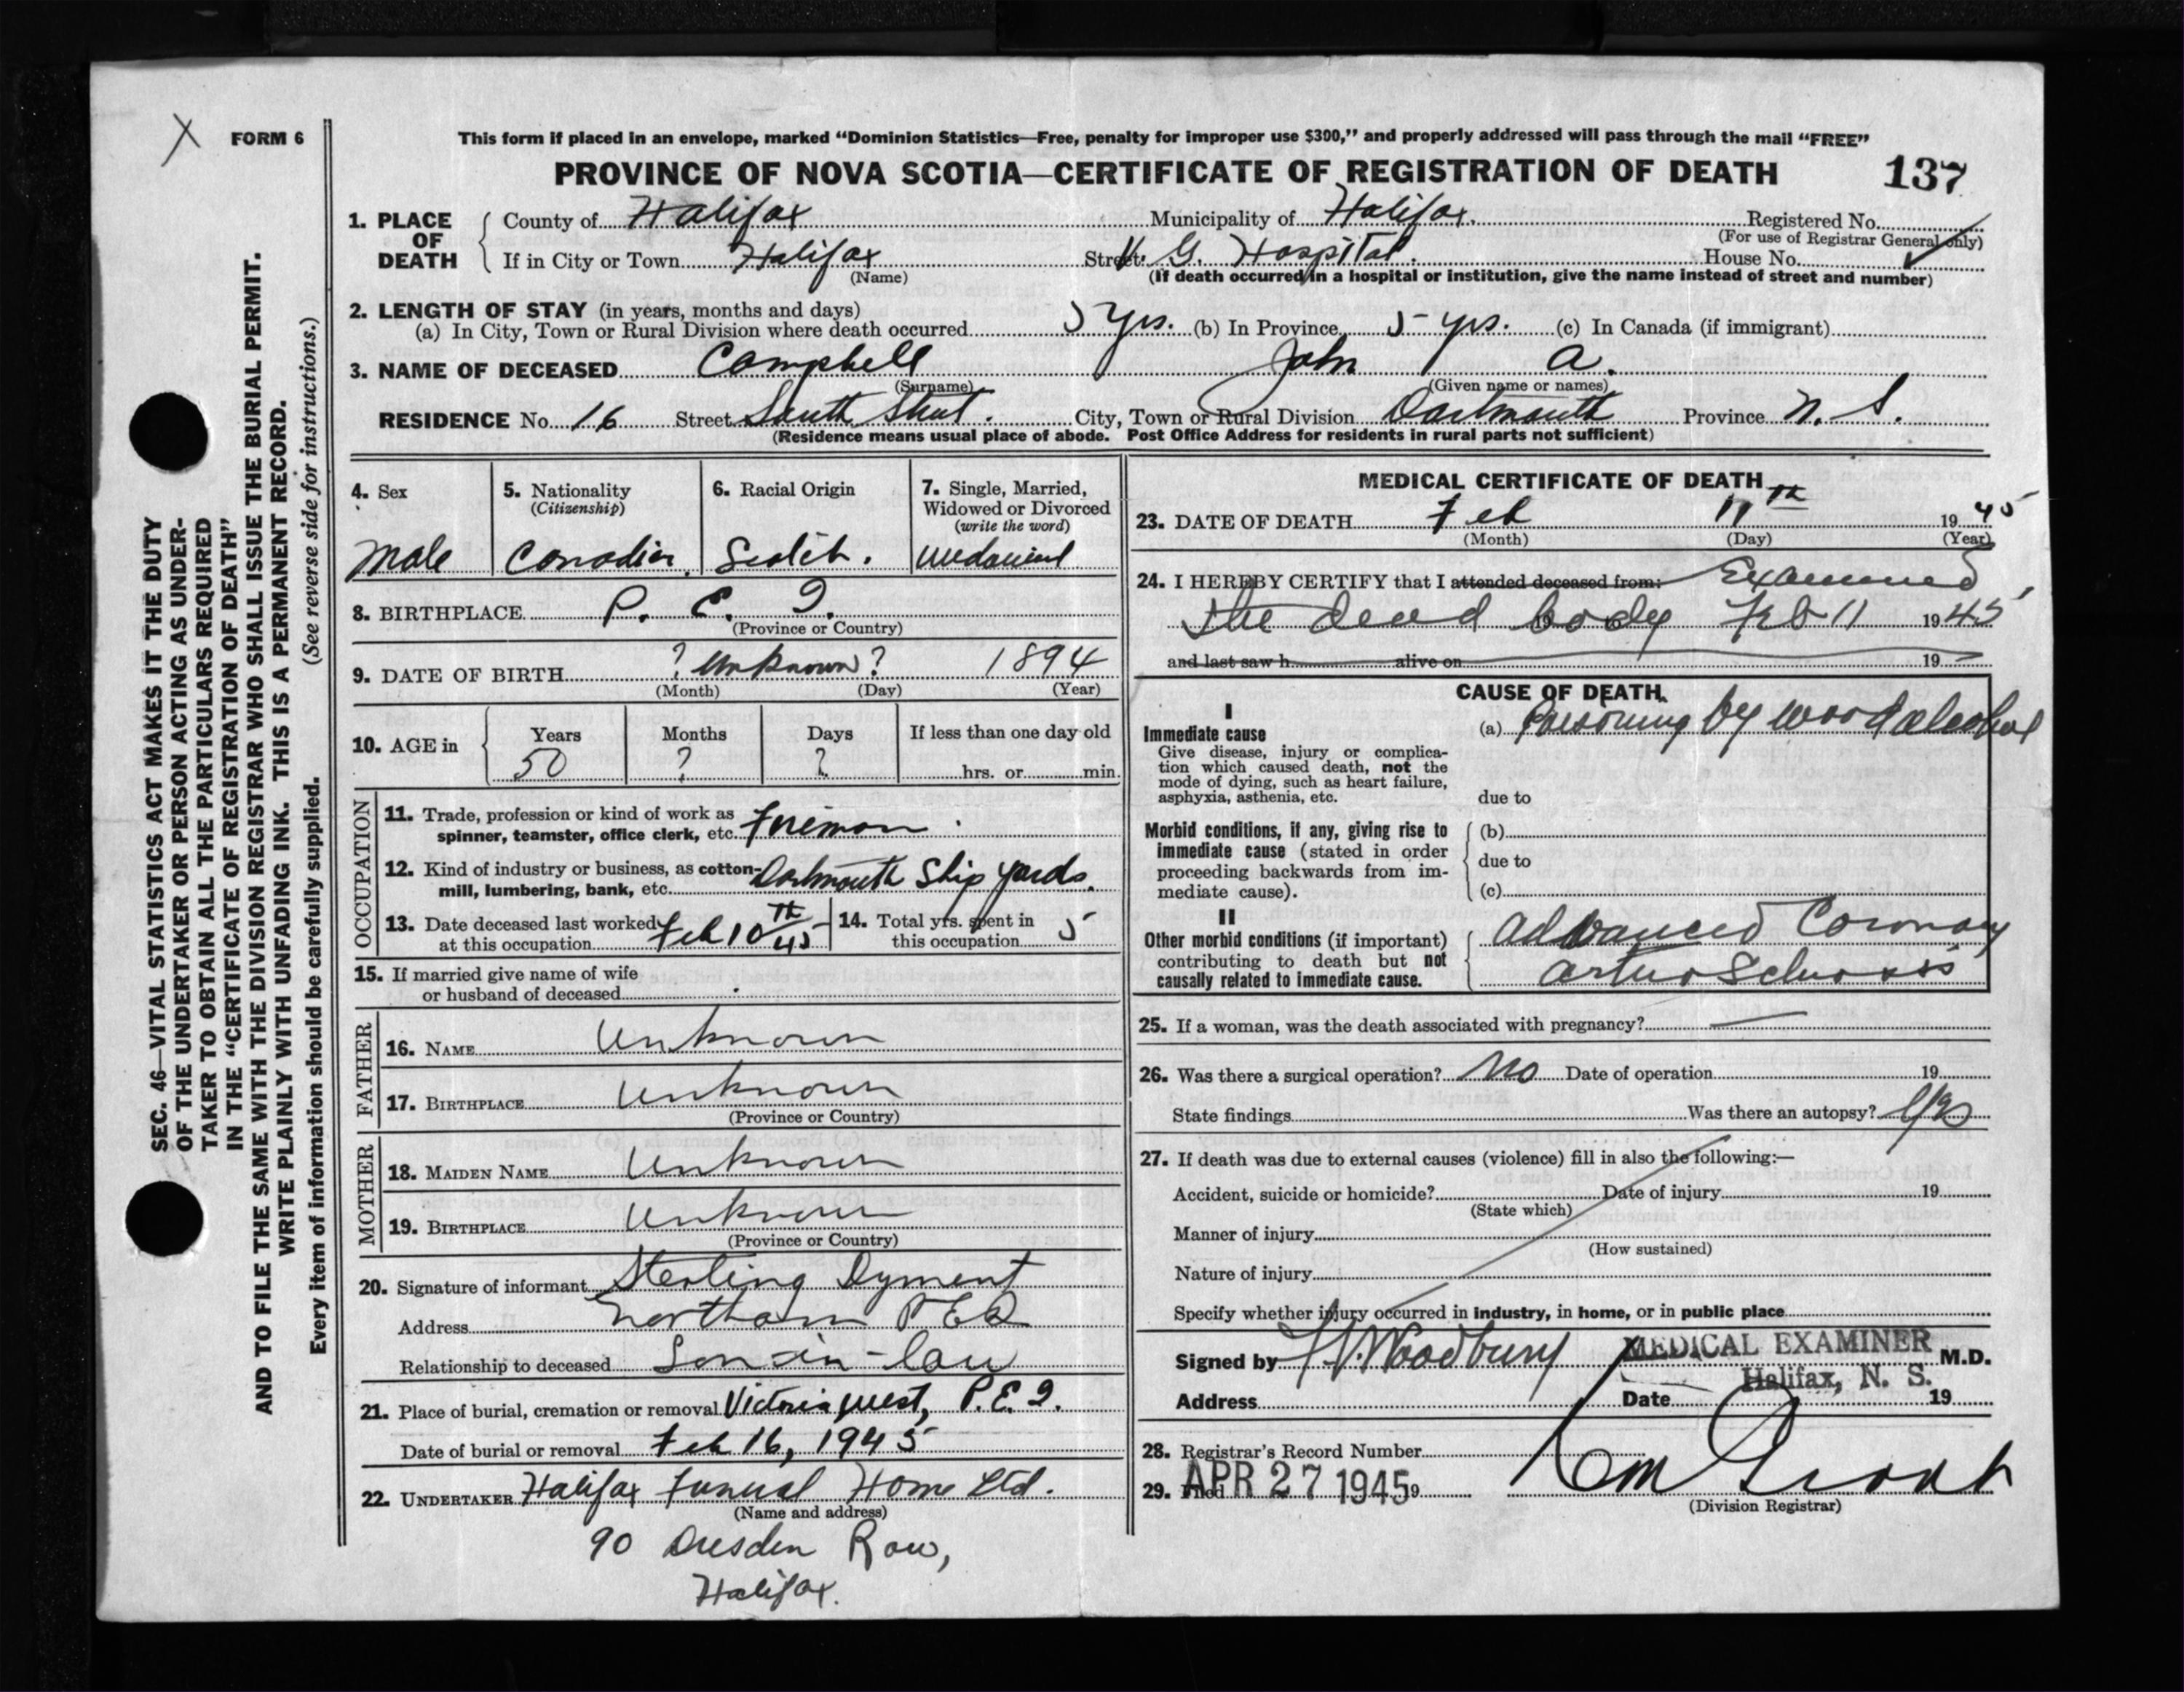 X FORM 6
This form if placed in an envelope, marked “Dominion Statistics—Free, penalty for improper use $300,” and properly addressed will pass through the mail “FREE”
PROVINCE OF NOVA SCOTIA—CERTIFICATE OF REGISTRATION OF DEATH 137
1. PLACE OF DEATH
County of Halifax Municipality of Halifax. Registered No.
(For use of Registrar General only)
If in City or Town Halifax Street V. G. Hospital. House No.
(Name) (If death occurred in a hospital or institution, give the name instead of street and number)
2. LENGTH OF STAY (in years, months and days)
(a) In City, Town or Rural Division where death occurred 5 yrs. (b) In Province 5 yrs. (c) In Canada (if immigrant)
3. NAME OF DECEASED Campbell John A.
(Surname) (Given name or names)
RESIDENCE No. 16 Street South Street. City, Town or Rural Division Dartmouth Province N. S.
(Residence means usual place of abode. Post Office Address for residents in rural parts not sufficient)
4. Sex
Male
5. Nationality
(Citizenship)
Canadian.
6. Racial Origin
Scotch.
7. Single, Married,
Widowed or Divorced
(write the word)
8. BIRTHPLACE P. E. I.
(Province or Country)
9. DATE OF BIRTH ? Unknown ? 1894
(Month) (Day) (Year)
10. AGE in
Years Months Days If less than one day old
50 ? ? hrs. or min.
OCCUPATION
11. Trade, profession or kind of work as
spinner, teamster, office clerk, etc. Foreman.
12. Kind of industry or business, as cotton-
mill, lumbering, bank, etc. Dartmouth Ship yards.
13. Date deceased last worked
at this occupation Feb 10th 45
14. Total yrs. spent in
this occupation 5
15. If married give name of wife
or husband of deceased
FATHER
16. NAME Unknown
17. BIRTHPLACE Unknown
(Province or Country)
MOTHER
18. MAIDEN NAME Unknown
19. BIRTHPLACE Unknown
(Province or Country)
20. Signature of informant Sterling Dyment
Address Northam P E I
Relationship to deceased Son-in-law
21. Place of burial, cremation or removal Victoria West, P.E.I.
Date of burial or removal Feb 16, 1945
22. UNDERTAKER Halifax Funeral Home Ltd.
(Name and address)
90 Dresden Row,
Halifax.
MEDICAL CERTIFICATE OF DEATH
23. DATE OF DEATH Feb 11th 1945
(Month) (Day) (Year)
24. I HEREBY CERTIFY that I attended deceased from: Examined
the dead body Feb 11 1945
and last saw h alive on 19
CAUSE OF DEATH
I
Immediate cause
Give disease, injury or complica-
tion which caused death, not the
mode of dying, such as heart failure,
asphyxia, asthenia, etc.
(a) Poisoning by wood alcohol
due to
Morbid conditions, if any, giving rise to
immediate cause (stated in order
proceeding backwards from im-
mediate cause).
(b)
due to
(c)
II
Other morbid conditions (if important)
contributing to death but not
causally related to immediate cause.
Advanced Coronary
arteriosclerosis
25. If a woman, was the death associated with pregnancy? —
26. Was there a surgical operation? No Date of operation 19
State findings Was there an autopsy? Yes
27. If death was due to external causes (violence) fill in also the following:—
Accident, suicide or homicide? Date of injury 19
(State which)
Manner of injury
(How sustained)
Nature of injury
Specify whether injury occurred in industry, in home, or in public place
Signed by Woodbury MEDICAL EXAMINER M.D.
Halifax, N. S.
Address Date 19
28. Registrar's Record Number
29. Filed APR 27 1945
(Division Registrar)
SEC. 46—VITAL STATISTICS ACT MAKES IT THE DUTY
OF THE UNDERTAKER OR PERSON ACTING AS UNDER-
TAKER TO OBTAIN ALL THE PARTICULARS REQUIRED
IN THE “CERTIFICATE OF REGISTRATION OF DEATH”
AND TO FILE THE SAME WITH THE DIVISION REGISTRAR WHO SHALL ISSUE THE BURIAL PERMIT.
WRITE PLAINLY WITH UNFADING INK. THIS IS A PERMANENT RECORD.
Every item of information should be carefully supplied. (See reverse side for instructions.)